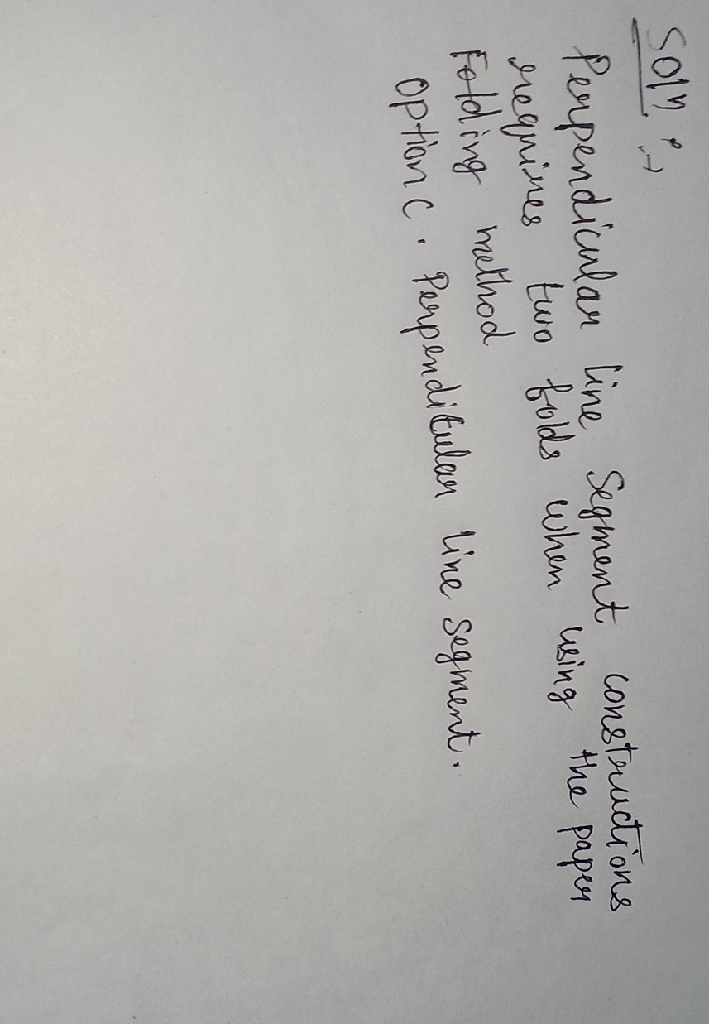 Soln :→
Perpendicular line Segment constructions
requires two folds when using the paper
Folding method
Option C. Perpendicular line segment.